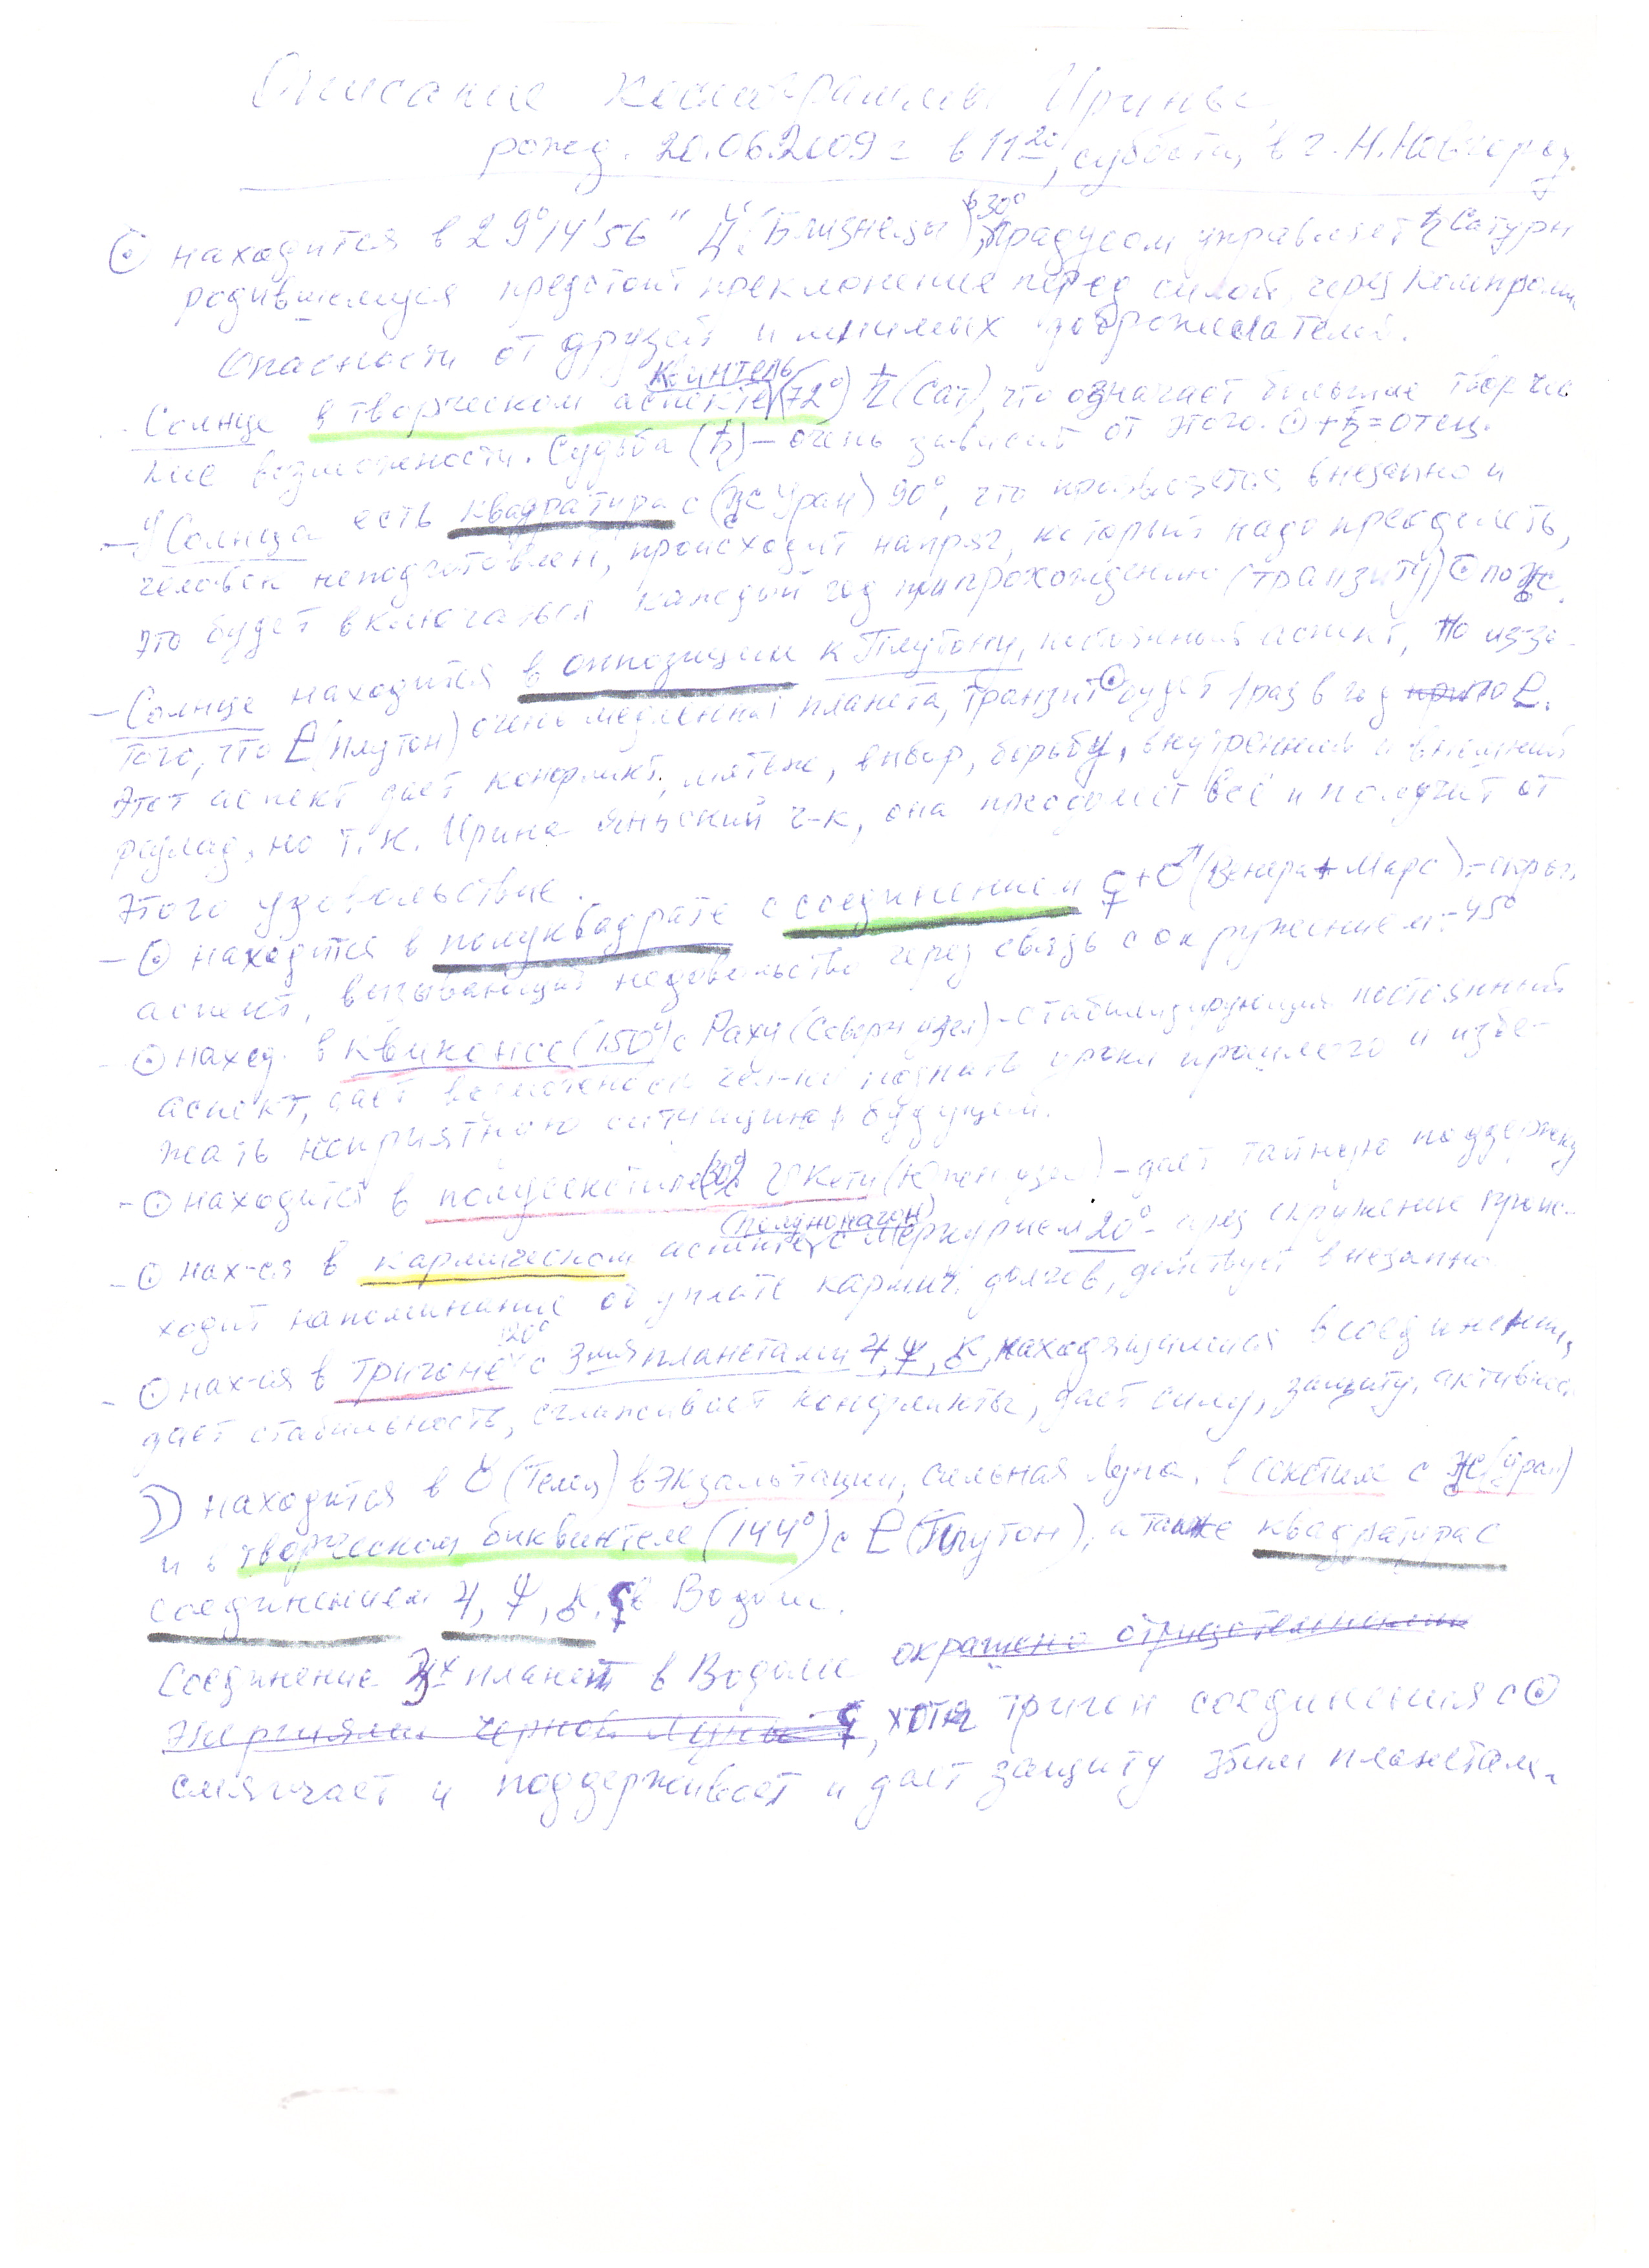 Описание космограммы Ирины,
рожд. 20.06.2009 г в 11 20, суббота, в г. Н.Новгород.
☉ находится в 29°14'56" ♊ "Близнецы", 30° градусом управляет ♄ Сатурн
родившемуся предстоит преклонение перед силой, через компромисс
Опасности от друзей и мнимых доброжелателей.
квинтель
Солнце в творческом аспекте (72°) ♄ (Сат), что означает большие творчес
кие возможности. Судьба (♄) – очень зависит от этого. ☉+♄=отец.
– У Солнца есть квадратура с (♅ Уран) 90°, что проявляется внезапно и
человек неподготовлен, происходит напряг, который надо преодолеть,
это будет включаться каждый год при прохождении (транзиту) ☉ по ♅.
– Солнце находится в оппозиции к Плутону, постоянный аспект, но из-за
того, что ♇ (Плутон) очень медленная планета, транзит ☉ будет 1 раз в год по ♇.
Этот аспект дает конфликт, мятеж, выбор, борьбу, внутренний и внешний
разлад, но т.к. Ирина яньский ч-к, она преодолеет всё и получит от
этого удовольствие.
– ☉ находится в полуквадрате с соединением ♀+♂ (Венера + Марс) – скрыт.
аспект, вызывающий недовольство через связь с окружением – 45°
– ☉ наход. в квиконсе (150°) с Раху (Северн узел) – стабилизирующий постоянный
аспект, дает возможность чел-ку познать уроки прошлого и избе-
жать неприятную ситуацию в будущем.
– ☉ находится в полусекстиле (30°) с ☋ Кету (Южн узел) – дает тайную поддержку
(полунонагон)
– ☉ нах-ся в кармическом аспекте с Меркурием 20° – через окружение проис-
ходит напоминание об уплате кармич. долгов, действует внезапно
120°
– ☉ нах-ся в тригоне с 3мя планетами ♃, ♆, ⚷, находящимися в соединении,
дает стабильность, сглаживает конфликты, дает силу, защиту, активнос
☽ находится в ♉ (Телец) в экзальтации, сильная Луна, в секстиле с ♅ (Уран)
и в творческом биквинтеле (144°) с ♇ (Плутон), а также квадратура с
соединением ♃, ♆, ⚷, в Водолее.
Соединение 3х планет в Водолее окрашено отрицательными
энергиями Черной Луны ⚸, хотя тригон соединения с ☉
смягчает и поддерживает и дает защиту этим планетам.